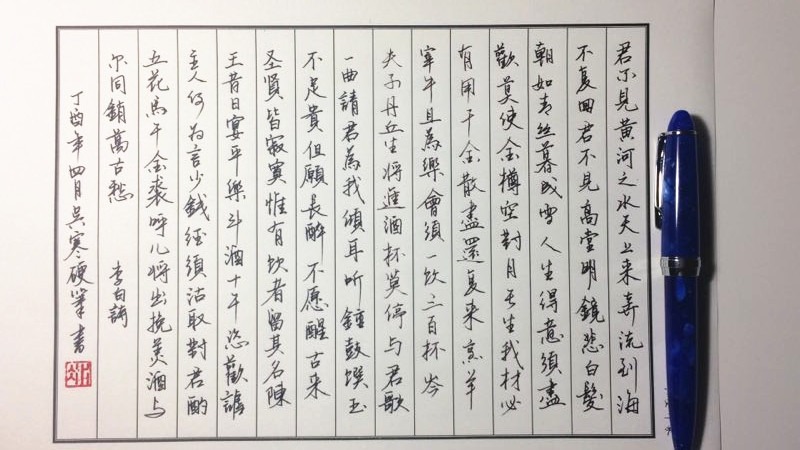 君不見黄河之水天上来奔流到海
不复回君不見高堂明鏡悲白髮
朝如青丝暮成雪人生得意須盡
歡莫使金樽空對月天生我材必
有用千金散盡還复来烹羊
宰牛且為樂會須一飲三百杯岑
夫子丹丘生將進酒杯莫停与君歌
一曲請君為我傾耳听鐘鼓饌玉
不足貴但願長醉不愿醒古来
圣賢皆寂寞惟有飲者留其名陳
王昔日宴平樂斗酒十千恣歡謔
主人何為言少錢經須沽取對君酌
五花馬千金裘呼儿將出換美酒与
尔同銷萬古愁 李白詩
丁酉年四月吴寒硬筆書